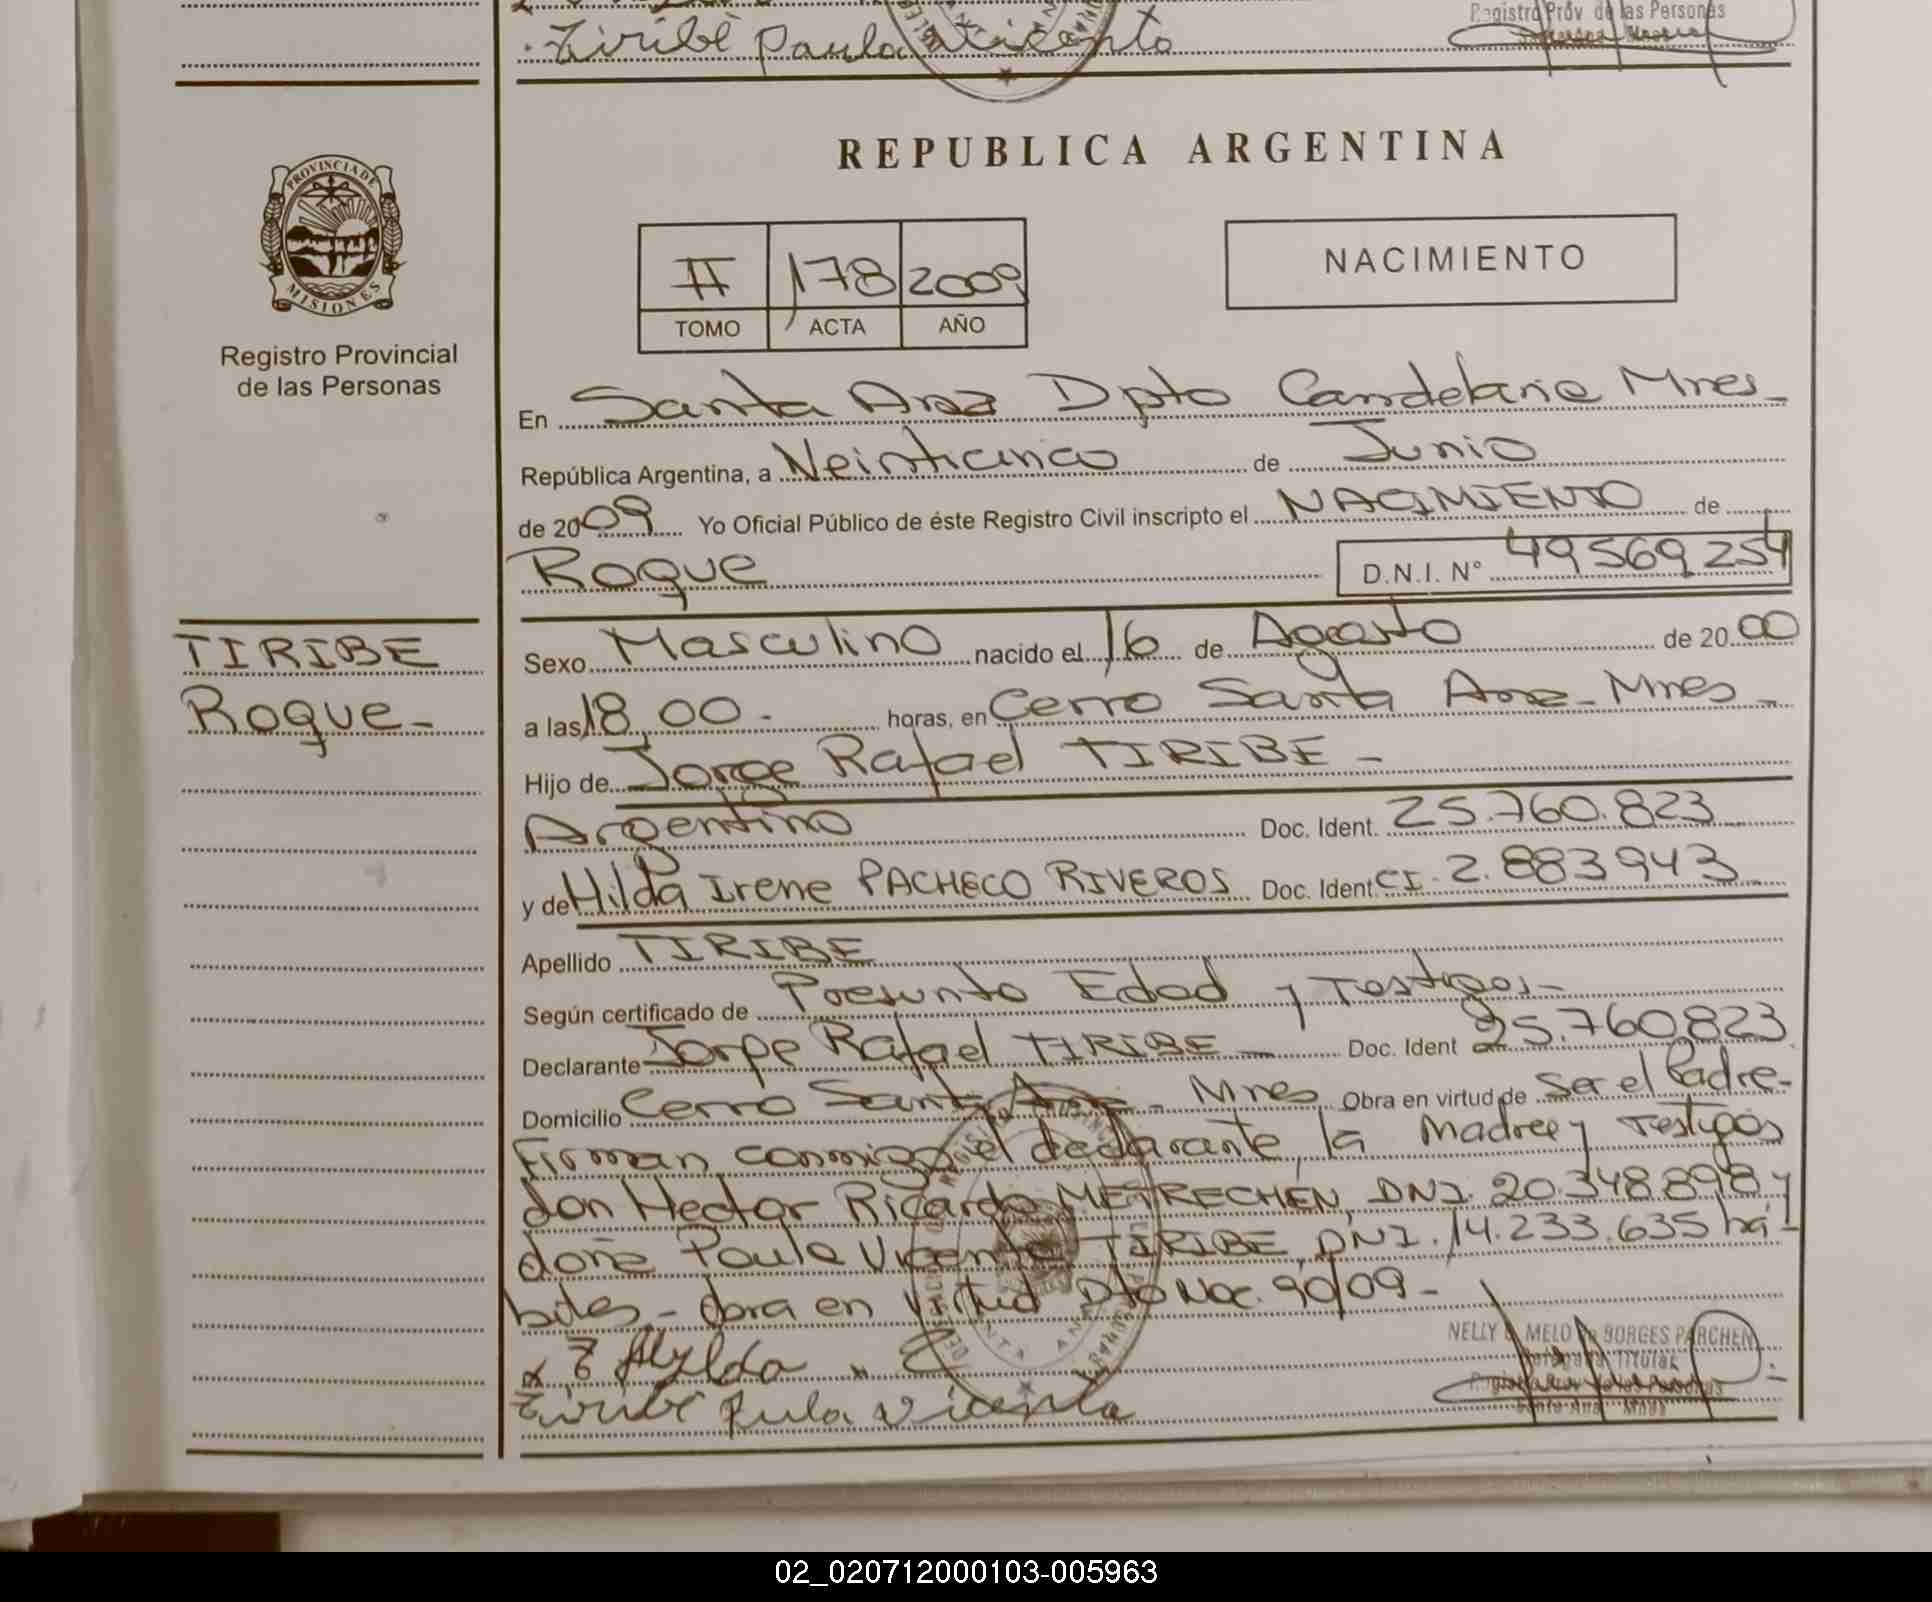 Registro Prov de las Personas
Tiribe Paula Vicenta
PROVINCIA DE
MISIONES
Registro Provincial
de las Personas
REPUBLICA ARGENTINA
II 178 2009
TOMO ACTA AÑO
NACIMIENTO
En Santa Ana Dpto Candelaria Mnes-
República Argentina, a Veinticinco de Junio
de 2009 Yo Oficial Público de éste Registro Civil inscripto el NACIMIENTO de
Roque D.N.I. N° 49569254
TIRIBE
Roque-
Sexo Masculino nacido el 16 de Agosto de 20 00
a las 18,00- horas, en Cerro Santa Ana- Mnes-
Hijo de Jorge Rafael TIRIBE -
Argentino Doc. Ident. 25.760.823
y de Hilda Irene PACHECO RIVEROS Doc. Ident CI. 2.883943
Apellido TIRIBE
Según certificado de Presunto Edad y Testigos-
Declarante Jorge Rafael TIRIBE - Doc. Ident 25.760823
Domicilio Cerro Santa Ana - Mnes Obra en virtud de Ser el Padre-
Firman conmigo el declarante, la Madre y Testigos
don Hector Ricardo METRECHEN, DNI. 20.348.898 y
doña Paula Vicenta TIRIBE, DNI. 14.233.635 há-
biles - obra en virtud Dto Nac. 90/09 -
NELLY MELO de BORGES PARCHEN
Delegada Titular
x Hylda x
Santa Ana Mnes
Tiribe Paula Vicenta
02_020712000103-005963